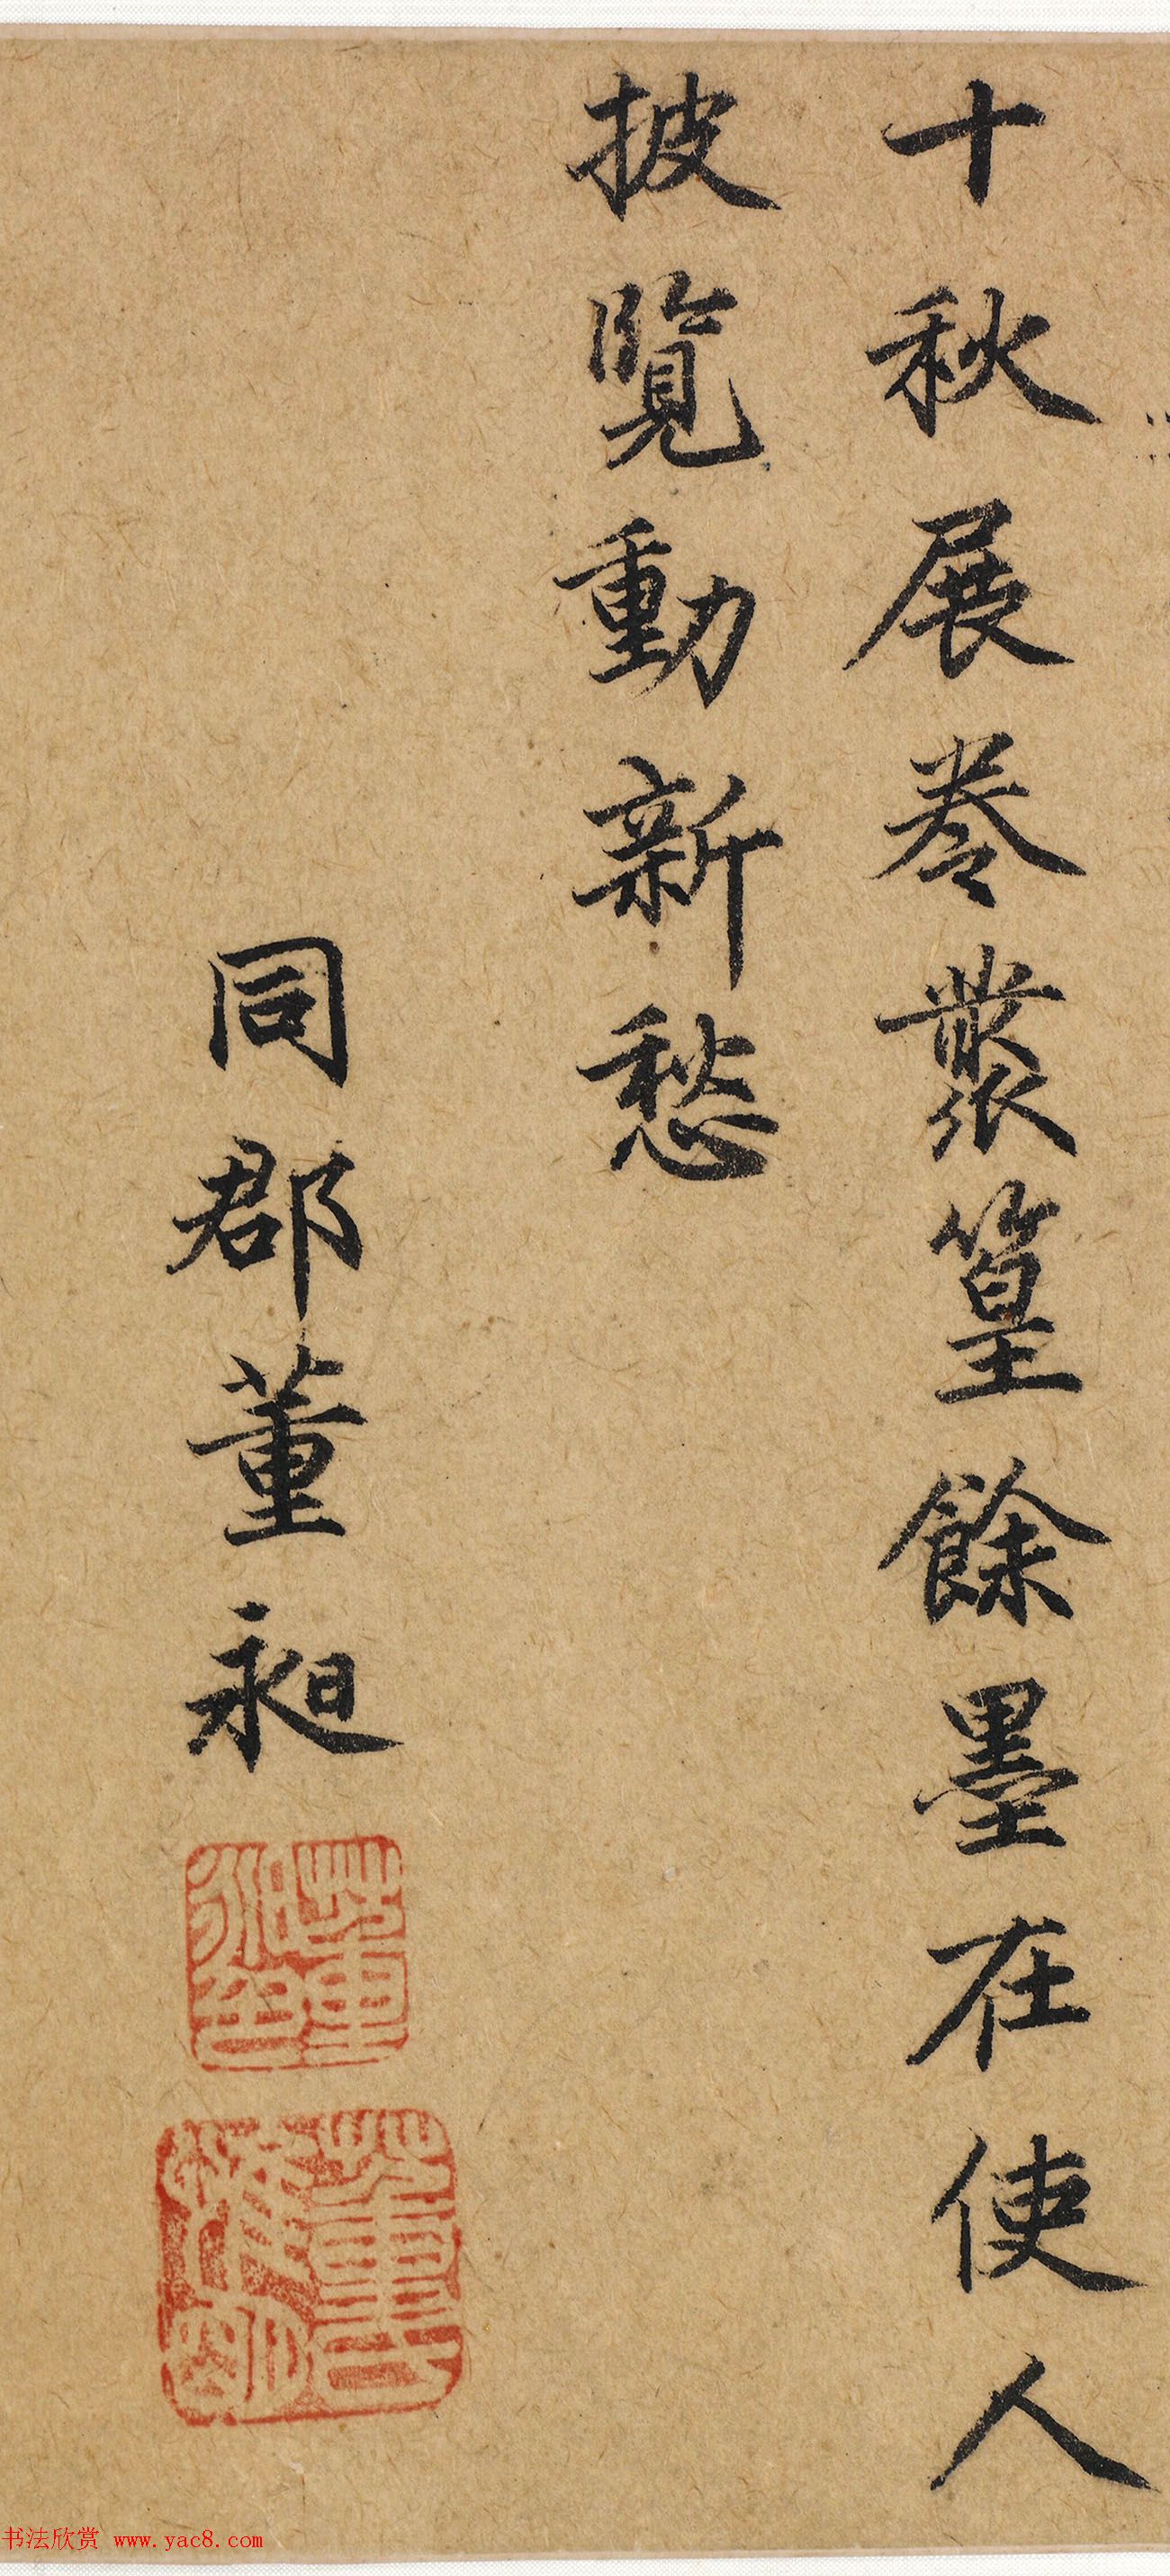 十秋展卷叢篁餘墨在使人
披覽動新愁
同郡董昶
书法欣赏 www.yac8.com